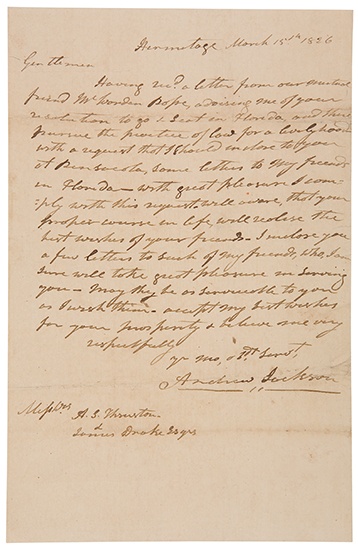 Hermitage March 15th 1826
Gentlemen
Having recd a letter from our mutual
friend Mr Worden Pope, advising me of your
resolution to go & settle in Florida, and there
pursue the practice of law for a livelyhood
with a request that I should inclose to you
at Pensacola, some letters to my friends
in Florida — with great pleasure I com-
ply with this request, well aware, that your
proper course in life, will realise the
best wishes of your friends — I inclose you
a few letters to such of my friends, who, I am
sure will take great pleasure in serving
you — may they be as serviceable to you
as I wish them — accept my best wishes
for your prosperity & believe me very
respectfully
yr mo, obt Servt,
Andrew Jackson
Messrs
A. S. Thruston
James Drake Esqrs